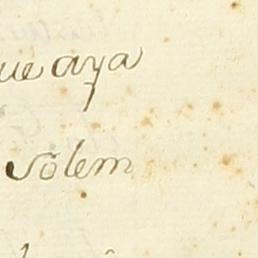 ue aya
solem